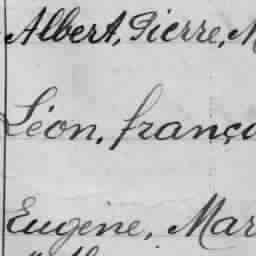 Albert, Pierre, M
Léon, franço
Eugène, Mar